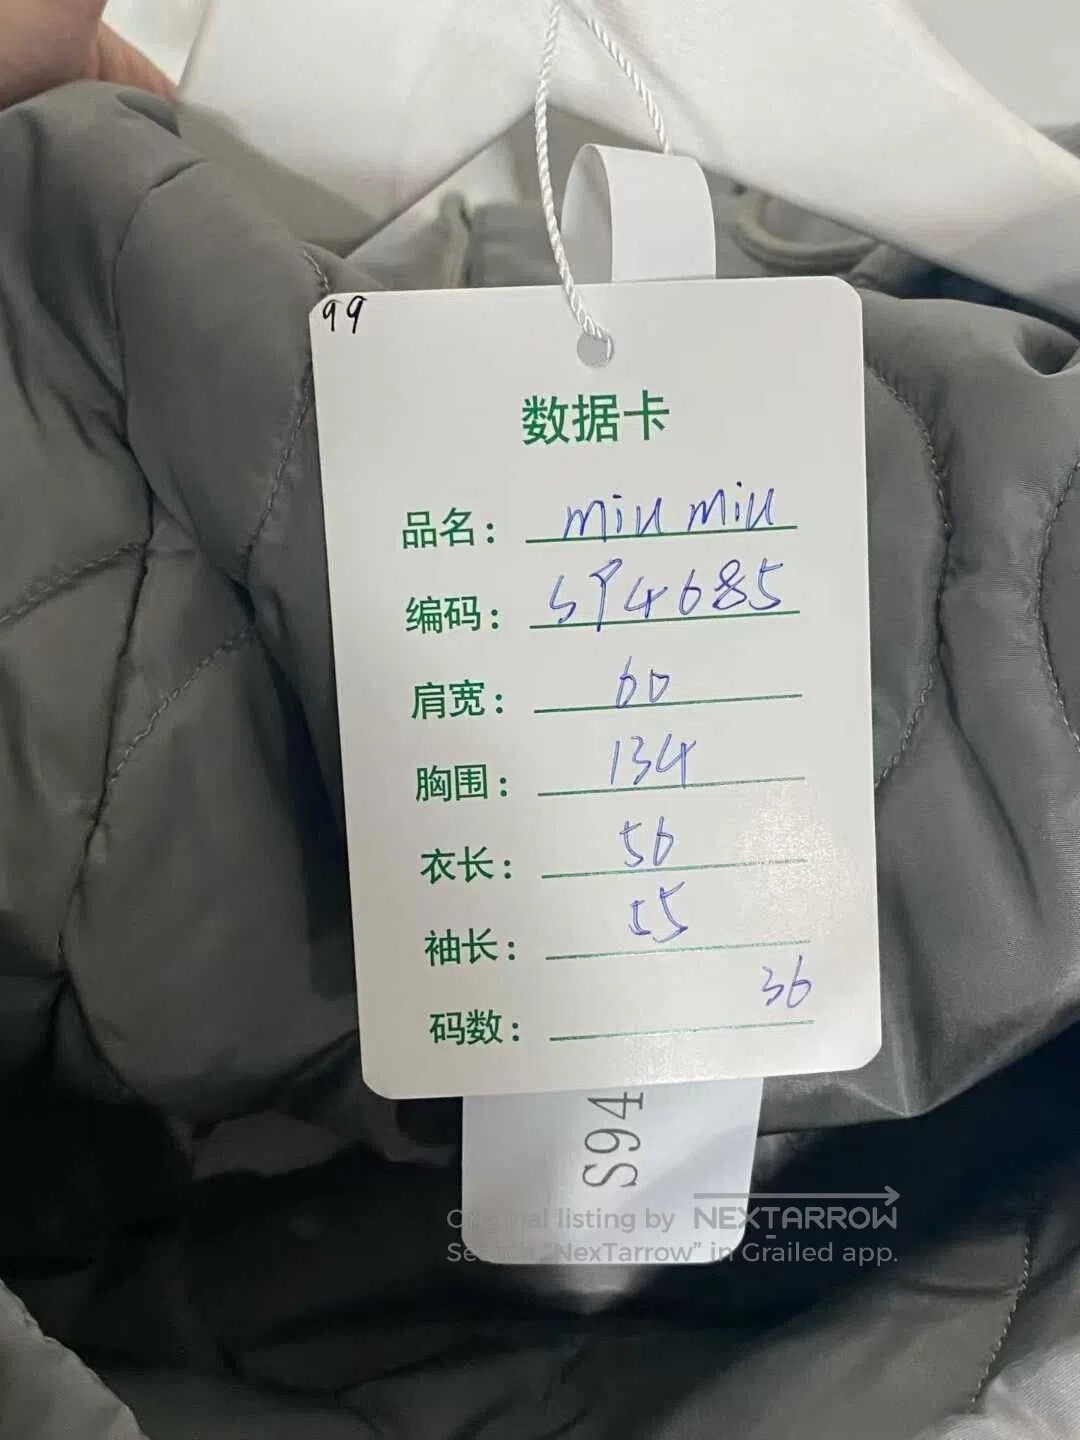 99
数据卡
品名: miu miu
编码: S94685
肩宽: 60
胸围: 134
衣长: 56
袖长: 55
码数: 36
S94
Original listing by NEXTARROW
Search "NexTarrow" in Grailed app.